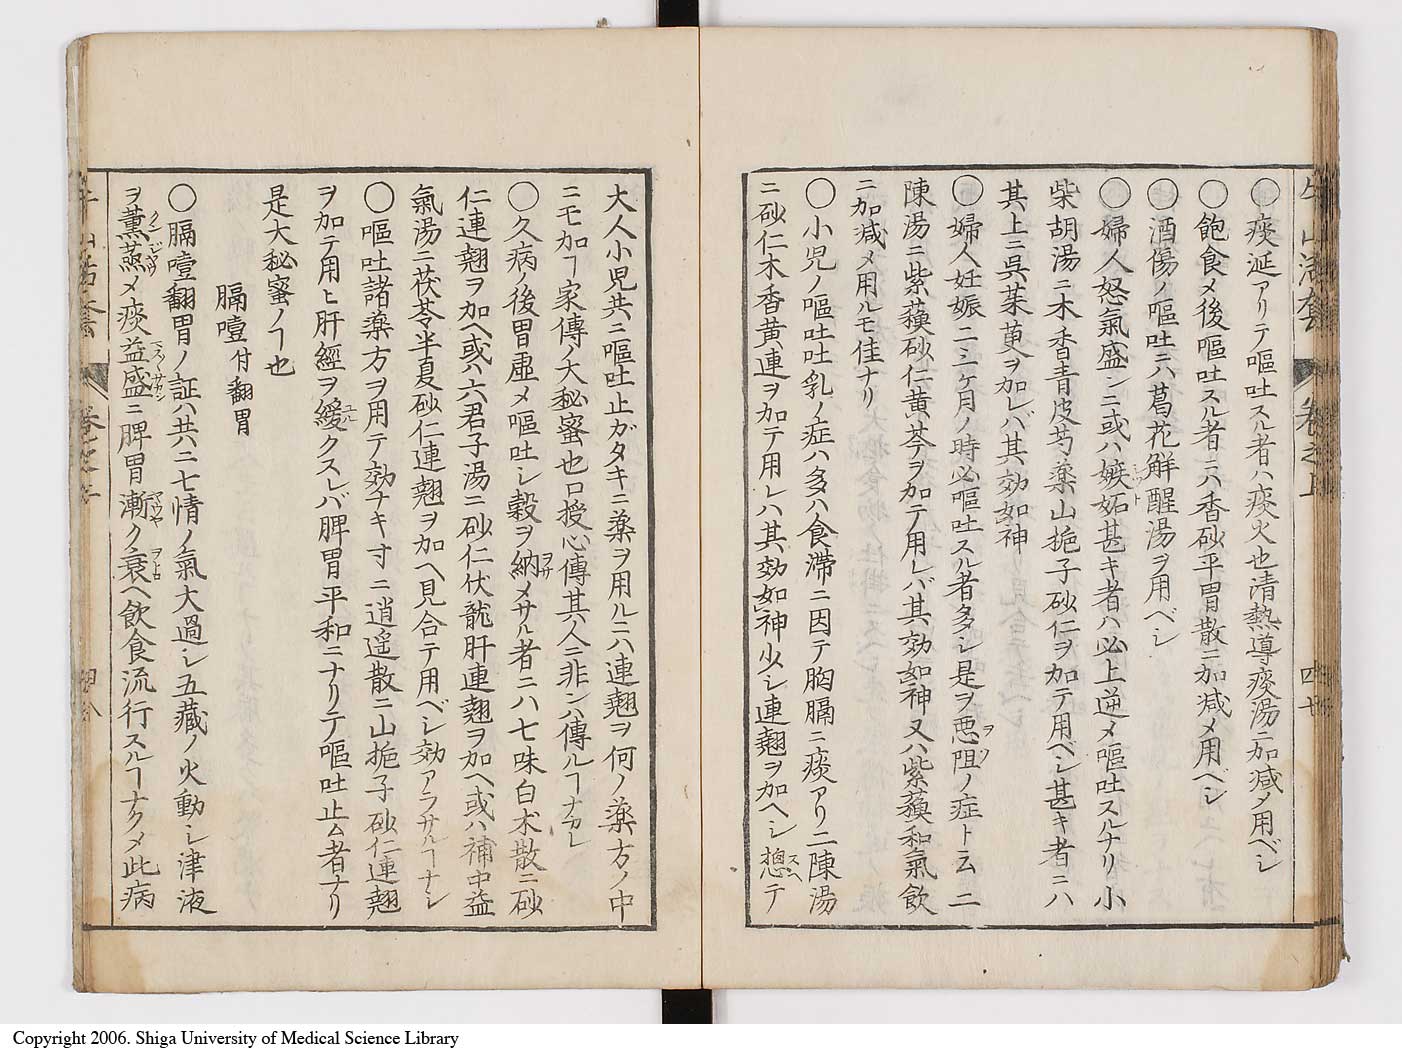 牛山活套 卷之上 四十七
○痰涎アリテ嘔吐スル者ハ痰火也清熱導痰湯ニ加減メ用ベシ
○飽食メ後嘔吐スル者ニハ香砂平胃散ニ加減メ用ベシ
○酒傷ノ嘔吐ニハ葛花解醒湯ヲ用ベシ
○婦人怒氣盛ンニ或ハ嫉妬甚キ者ハ必上逆メ嘔吐スルナリ小
柴胡湯ニ木香青皮芍藥山梔子砂仁ヲ加テ用ベシ甚キ者ニハ
其上ニ呉茱萸ヲ加レバ其効如神
○婦人妊娠二三ヶ月ノ時必嘔吐スル者多シ是ヲ悪阻ノ症ト云二
陳湯ニ紫蘓砂仁黄芩ヲ加テ用レバ其効如神又ハ紫蘓和氣飲
ニ加減メ用ルモ佳ナリ
○小児ノ嘔吐吐乳ノ症ハ多ハ食滞ニ因テ胸膈ニ痰アリ二陳湯
ニ砂仁木香黄連ヲ加テ用レハ其効如神少シ連翹ヲ加ヘシ揔テ
大人小児共ニ嘔吐止ガタキニ薬ヲ用ルニハ連翹ヲ何ノ薬方ノ中
ニモ加ヿ家傳ノ大秘蜜也口授心傳其人ニ非ンハ傳ルヿナカレ
○久病ノ後胃虚メ嘔吐シ穀ヲ納メサル者ニハ七味白朮散ニ砂
仁連翹ヲ加ヘ或ハ六君子湯ニ砂仁伏龍肝連翹ヲ加ヘ或ハ補中益
氣湯ニ茯苓半夏砂仁連翹ヲ加ヘ見合テ用ベシ効アラサルヿナシ
○嘔吐諸藥方ヲ用テ効ナキ寸ニ逍遥散ニ山梔子砂仁連翹
ヲ加テ用ヒ肝經ヲ緩クスレバ脾胃平和ニナリテ嘔吐止ム者ナリ
是大秘蜜ノヿ也
膈噎付翻胃
○膈噎翻胃ノ証ハ共ニ七情ノ氣大過シ五藏ノ火動シ津液
ヲ薫蒸メ痰益盛ニ脾胃漸ク衰ヘ飲食流行スルヿナクメ此病
Copyright 2006. Shiga University of Medical Science Library